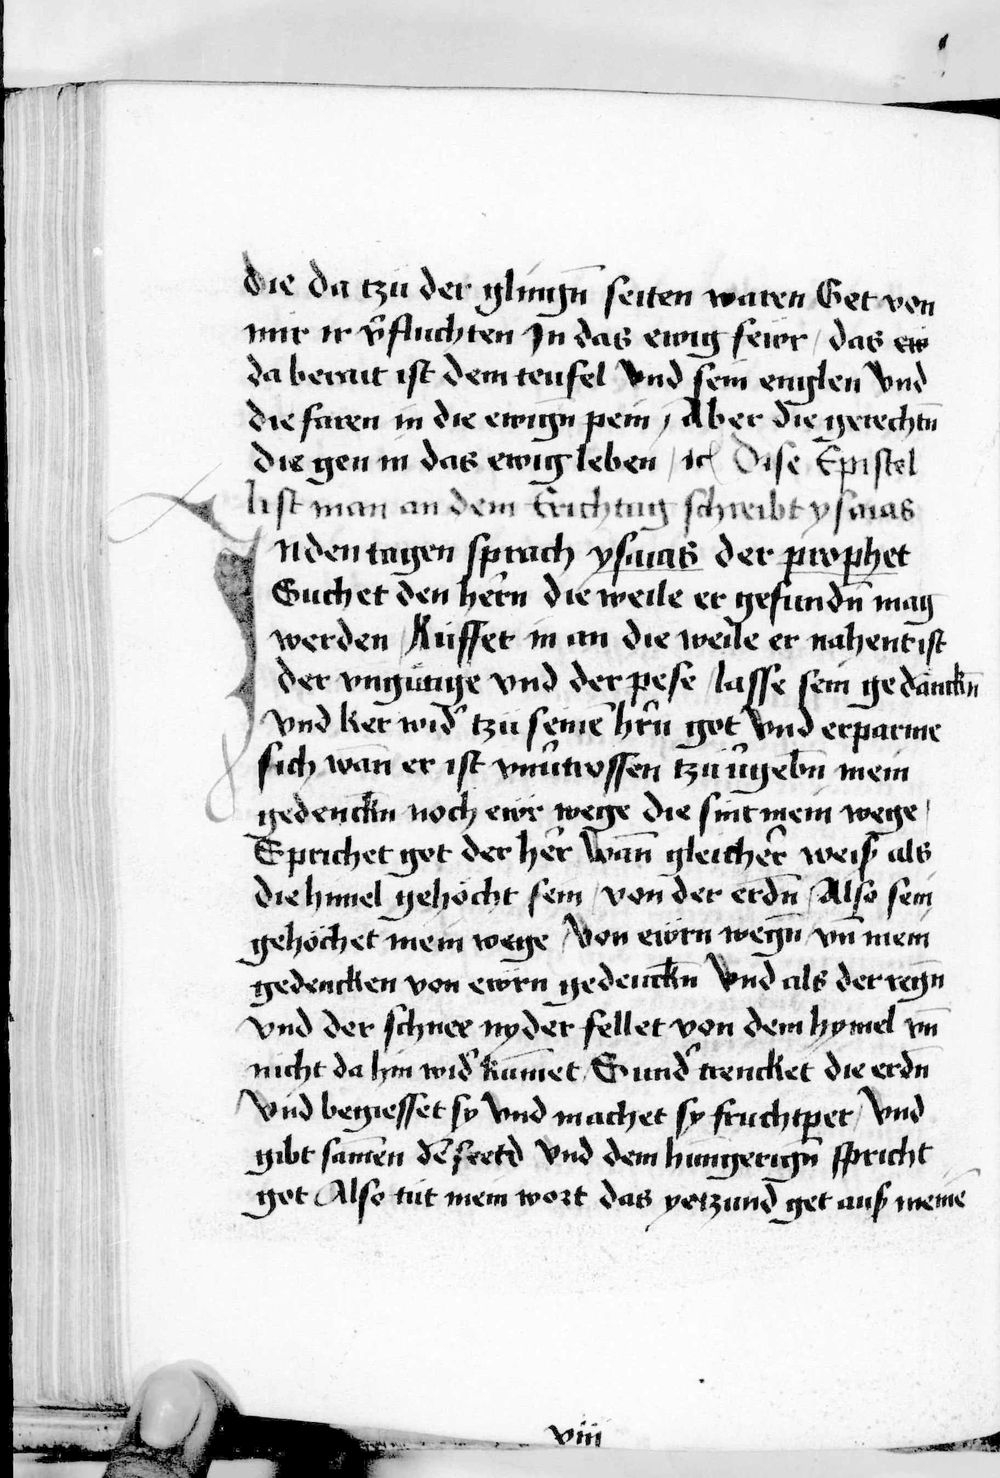 die da tzu der glingn̄ seiten waren Get von
mir ir v̄fluchten In das ewig feẅr / das ew
da berait ist dem teufel Vnd sein englen Vnd
die faren in die ewign̄ pein / Aber die gerechtn̄
die gen in das ewig leben / ic Dise Epistel
list man an dem Erichtag schreibt ysaias
In den tagen sprach ysaias der prophet
Suchet den hern̄ die weile er gefundn̄ mag
werden / Rüffet in an die weile er nahent ist
der vngütige vnd der pese / lasse sein gedänckn̄
vnd ker wid' tzü seinē hr̄n got Vnd erparme
sich wan̄ er ist tzü mein
gedenckn̄ noch eẅr wege die sint mein wege /
Sprichet got der her̄ Wan̄ gleicher̄ weiß als
die himel gehöcht sein / von der erdn̄ / Also sein
gehöchet mein wege / Von eẅrn wegn̄ vn̄ mein
gedencken von eẅrn gedenckn̄ Vnd als der regn̄
vnd der schnee nyder fellet von dem hymel vn̄
nicht da hin wid' kum̄et / Sund' trencket die erdn̄
Vnd begiesset sy Vnd machet sy fruchtper / Vnd
gibt samen̄ dē seetd Vnd dem hungerign̄ spricht
got Also tüt mein wort das yetzund get auß meinē
viii